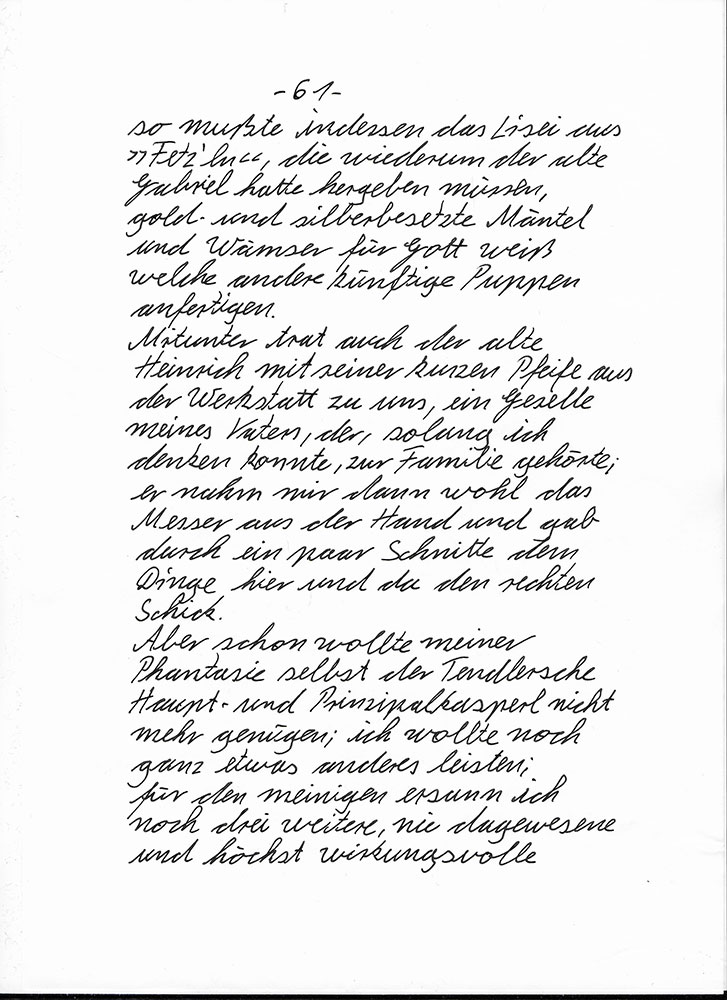 -61-
so mußte indessen das Lisei aus
»Fetz'ln«, die wiederum der alte
Gabriel hatte hergeben müssen,
gold- und silberbesetzte Mäntel
und Wämser für Gott weiß
welche andere künftige Puppen
anfertigen.
Mitunter trat auch der alte
Heinrich mit seiner kurzen Pfeife aus
der Werkstatt zu uns, ein Geselle
meines Vaters, der, solang ich
denken konnte, zur Familie gehörte;
er nahm mir dann wohl das
Messer aus der Hand und gab
durch ein paar Schnitte dem
Dinge hier und da den rechten
Schick.
Aber schon wollte meiner
Phantasie selbst der Tendlersche
Haupt- und Prinzipalkasperl nicht
mehr genügen; ich wollte noch
ganz etwas anderes leisten;
für den meinigen ersann ich
noch drei weitere, nie dagewesene
und höchst wirkungsvolle